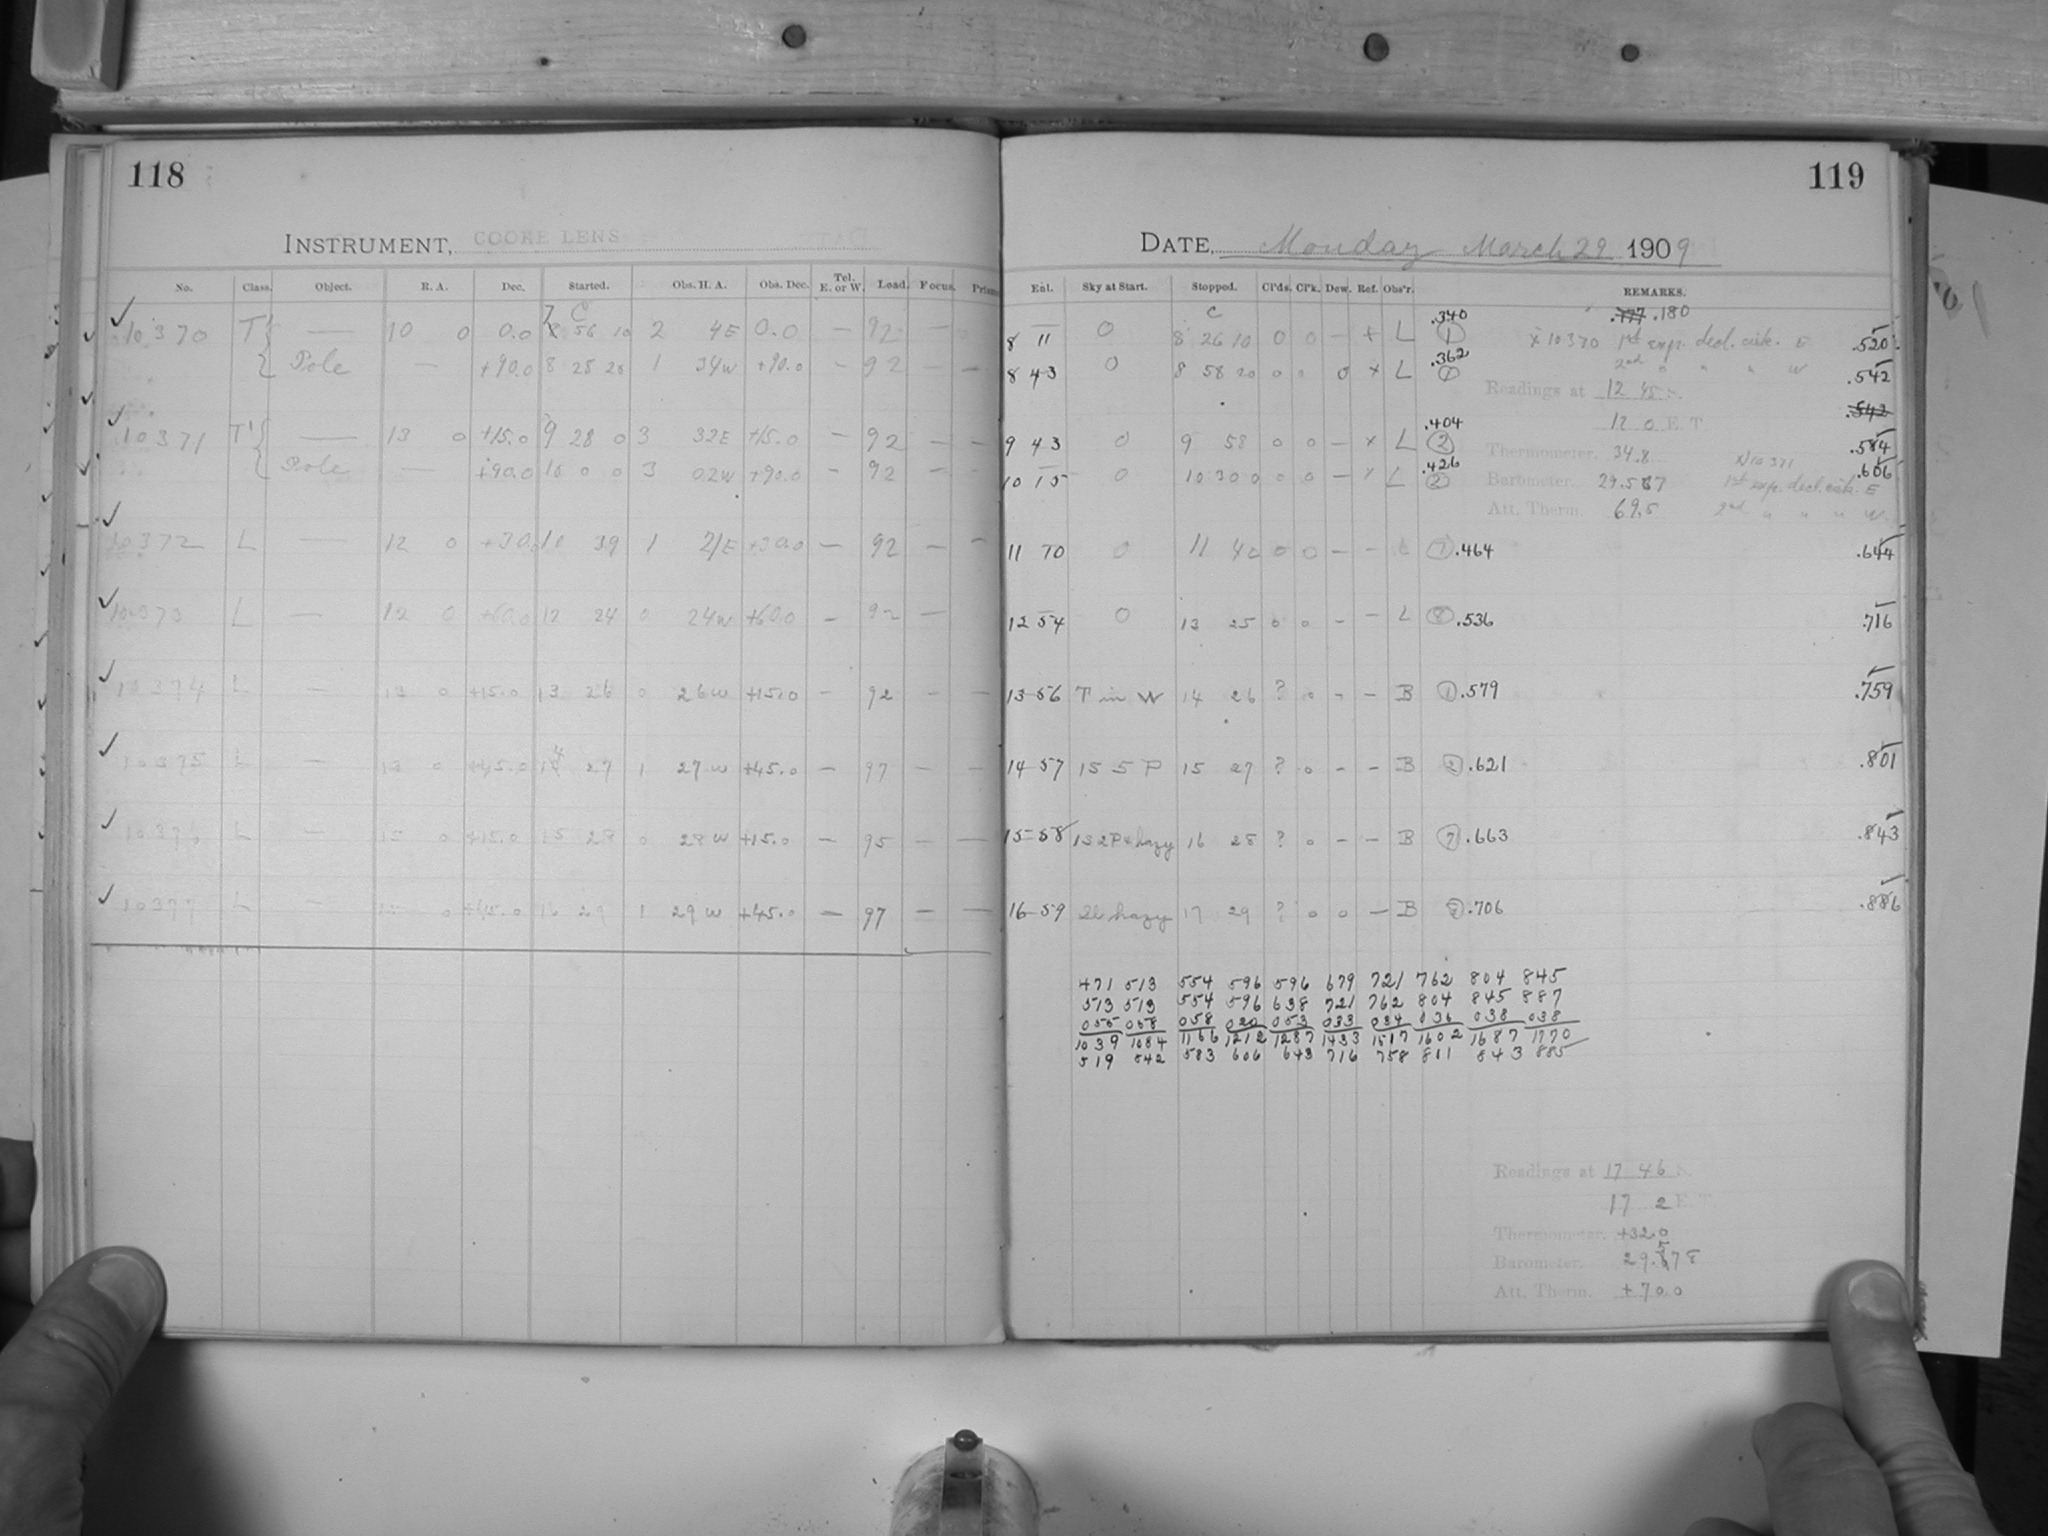 118
INSTRUMENT, COOKE LENS
No. Class. Object. R. A. Dec. Started. Obs. H. A. Obs. Dec. Tel. E. or W. Load. Focus. Prism
10370 T' — 10 0 0.0 7 56 10 2 4E 0.0 — 92 —
Pole — +90.0 8 28 20 1 34W +90.0 — 92 — —
10371 T' — 13 0 +15.0 9 28 0 3 32E +15.0 — 92 — —
Pole — +90.0 10 0 0 3 02W +90.0 — 92 — —
10372 L — 12 0 +30.0 10 39 1 21E +30.0 — 92 — —
10373 L — 12 0 +60.0 12 24 0 24W +60.0 — 92 —
10374 L — 13 0 +15.0 13 26 0 26W +15.0 — 92 — —
10375 L — 13 0 +45.0 14 27 1 27W +45.0 — 97 — —
10376 L — 15 0 +15.0 15 28 0 28W +15.0 — 95 — —
10377 L — 15 0 +45.0 16 29 1 29W +45.0 — 97 — —
119
DATE, Monday March 29 1909
Ent. Sky at Start. Stopped. Cl'ds. Cl'k. Dew. Ref. Obs'r. REMARKS.
.180
8 11 0 8 26 10 0 0 — + L 1 .340 x 10370 1st exp. decl. circ. E .520
8 43 0 8 58 20 0 0 0 x L 1 .362 2nd " " " W .542
Readings at 12 45 S.
12 0 E.T.
9 43 0 9 58 0 0 — x L 2 .404 .584
Thermometer. 34.8
10 15 0 10 30 0 0 0 — x L 2 .426 x 10371 .606
Barometer. 29.587 1st exp. decl. circ. E
Att. Therm. 69.5 2nd " " " W.
11 10 0 11 42 0 0 — — L .464 .644
12 54 0 13 25 0 0 - - L .536 .716
13 56 T in W 14 26 ? 0 - - B 1 .579 .759
14 57 15 5 P 15 27 ? 0 - - B 2 .621 .801
15 58 15 2P & hazy 16 28 ? 0 - - B 7 .663 .843
16 59 hazy 17 29 ? 0 0 — B .706 .886
471 513 554 596 596 679 721 762 804 845
513 513 554 596 638 721 762 804 845 887
055 058 058 020 053 033 034 036 038 038
1039 1084 1166 1212 1287 1433 1517 1602 1687 1770
519 542 583 606 643 716 758 811 843 885
Readings at 17 46 S.
17 2 E.T.
Thermometer. +32.0
Barometer. 29.578
Att. Therm. +70.0